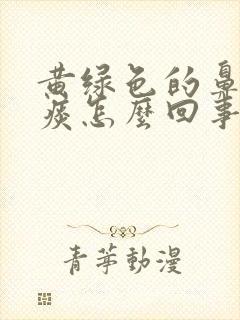 黄绿色的鼻
痰怎麼回事
青苹動漫